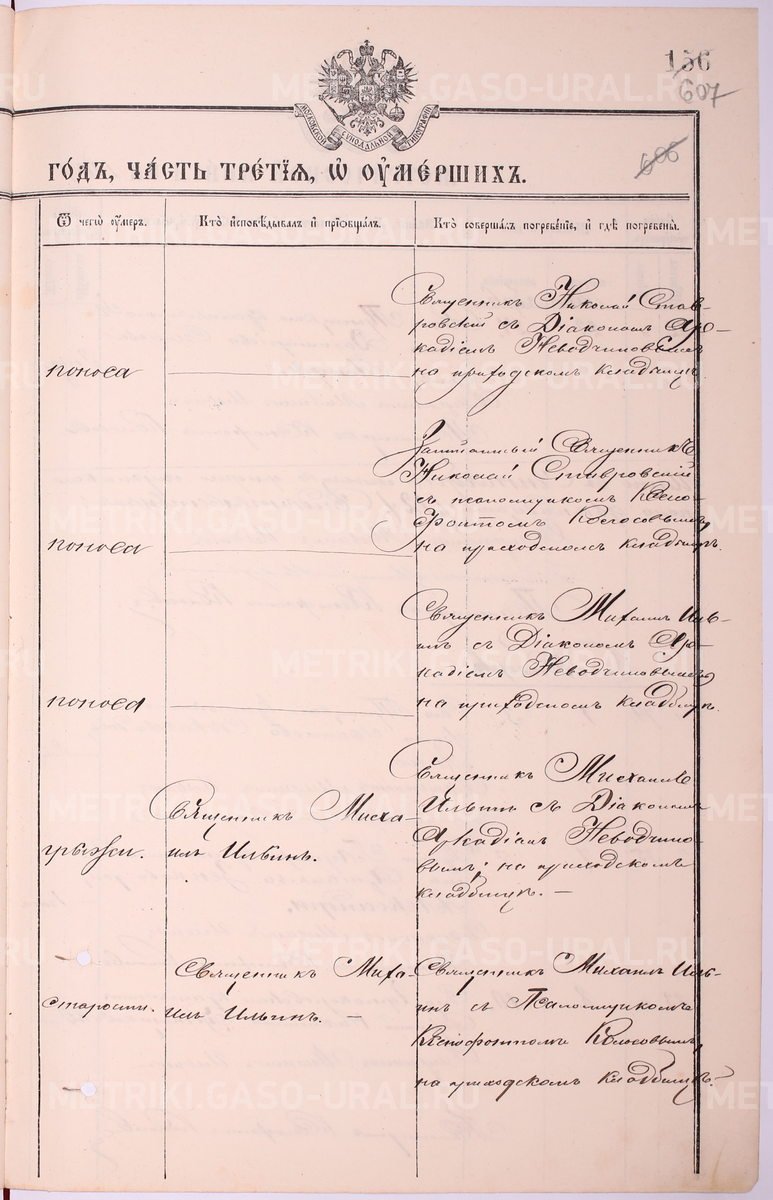 156
607
606
МОСКОВСКОЙ СѴНОДАЛЬНОЙ ТИПОГРАФІИ
го́дъ, ча́сть тре́тїѧ, ѡ҆ ᲂу҆ме́ршихъ.
Ѿ чегѡ̀ ᲂу҆́меръ.
Кто̀ и҆сповѣ́дывалъ и҆ прїѡбща́лъ.
Кто̀ соверша́лъ погребе́нїе, и҆ гдѣ̀ погребены̀.
Священникъ Николай Став-
ровскій съ Діакономъ Ар-
кадіемъ Неводчиковымъ
поноса
на приходскомъ кладбищѣ
Священникъ
Николай Ставровскій
съ псаломщикомъ Ксено-
фонтомъ Колосовымъ,
поноса
на приходскомъ кладбищѣ.
Священникъ Михаилъ Иль-
инъ съ Діакономъ Ар-
кадіемъ Неводчиковымъ
поноса
на приходскомъ кладбищѣ.
грыжи.
Священникъ Миха-
илъ Ильинъ.
Священникъ Михаилъ
Ильинъ съ Діакономъ
Аркадіемъ Неводчико-
вымъ; на приходскомъ
кладбищѣ. —
старости.
Священникъ Миха-
илъ Ильинъ. —
Священникъ Михаилъ Иль-
инъ съ Псаломщикомъ
Ксенофонтомъ Колосовымъ,
на приходскомъ кладбищѣ.
METRIKI.GASO-URAL.RU